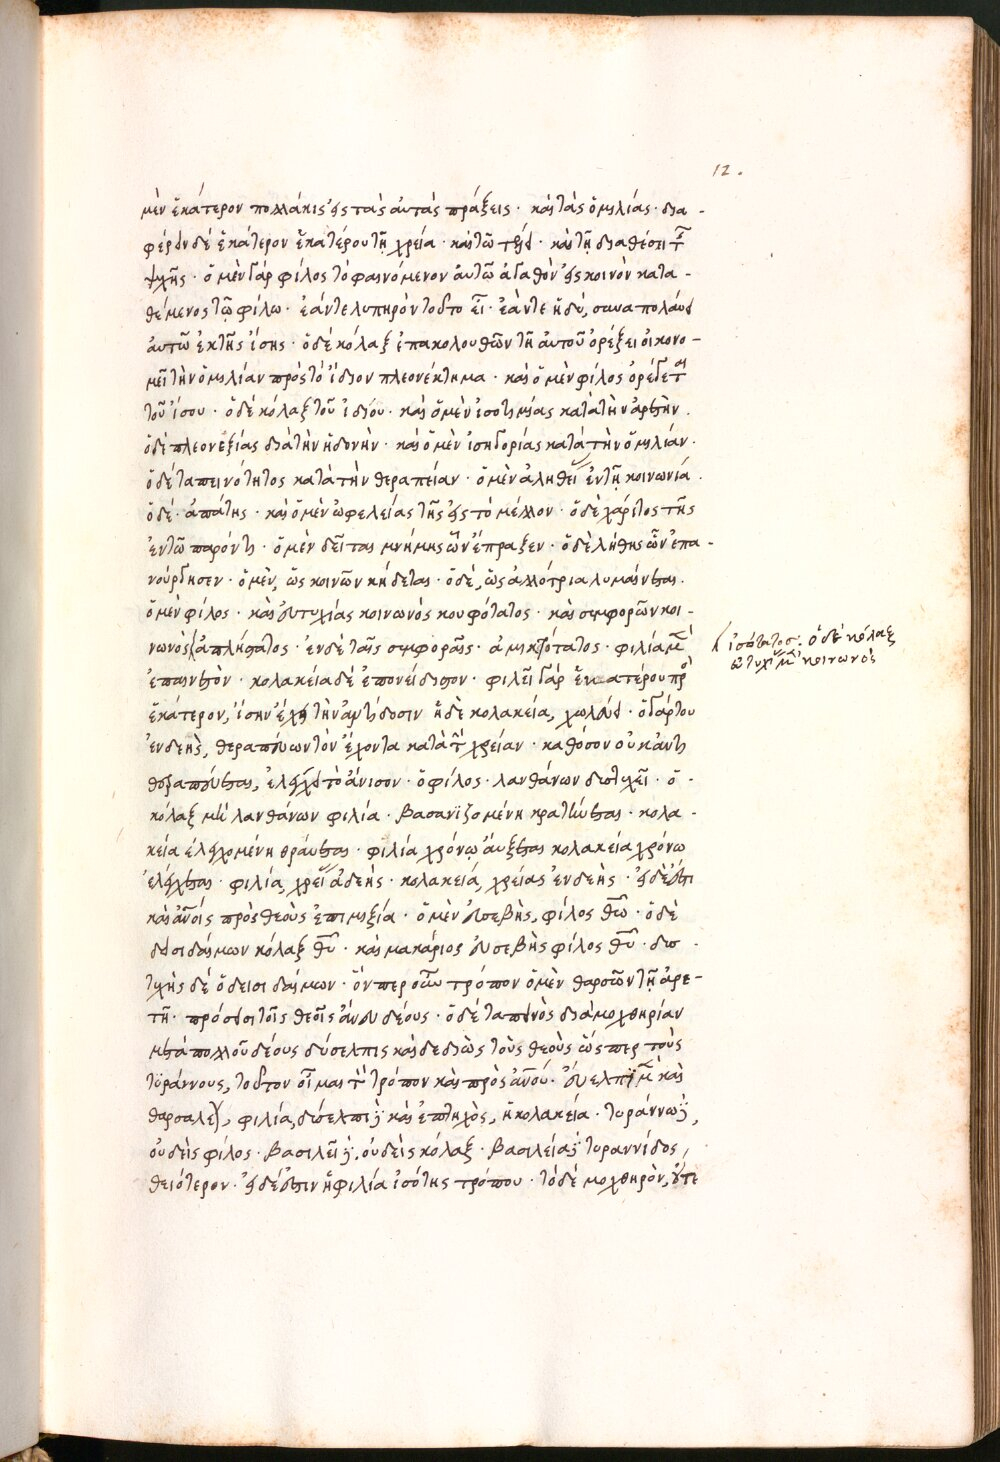 12.
μὲν ἑκάτερον πολλάκις ἐς τὰς αὐτὰς πράξεις · καὶ τὰς ὁμιλίας · δια -
φέρον δὲ ἑκάτερον ἑκατέρου τῇ χρεία · καὶ τῶ τέλει · καὶ τῇ διαθέσει τῆς
ψυχῆς · ὁ μὲν γὰρ φίλος τὸ φαινόμενον αὐτῶ ἀγαθὸν ἐς κοινὸν κατα -
θέμενος τῷ φίλω · ἐάν τε λυπηρὸν τοῦτο εἴη · ἐάν τε ἡδύ, συναπολαύει
αὐτῶ ἐκ τῆς ἴσης · ὁ δὲ κόλαξ ἐπακολουθῶν τῇ αὐτοῦ ὀρέξει οἰκονο -
μεῖ τὴν ὁμιλίαν πρὸς τὸ ἴδιον πλεονέκτημα · καὶ ὁ μὲν φίλος ὀρέγεται
τοῦ ἴσου · ὁ δὲ κόλαξ τοῦ ἰδίου · καὶ ὁ μὲν ἰσοτιμίας κατὰ τὴν ἀρετὴν .
ὁ δὲ πλεονεξίας διὰ τὴν ἡδονὴν · καὶ ὁ μὲν ἰσηγορίας κατὰ τὴν ὁμιλίαν ·
ὁ δὲ ταπεινότητος κατὰ τὴν θεραπείαν · ὁ μὲν ἀληθείας ἐν τῇ κοινωνία .
ὁ δὲ · ἀπάτης · καὶ ὁ μὲν ὠφελείας τῆς ἐς τὸ μέλλον · ὁ δὲ χάριτος τῆς
ἐν τῶ παρόντι · ὁ μὲν δεῖται μνήμης ὧν ἔπραξεν · ὁ δὲ λήθης ὧν ἐπα -
νούργησεν · ὁ μὲν, ὡς κοινῶν κήδεται · ὁ δέ, ὡς ἀλλότρια λυμαίνεται .
ὁ μὲν φίλος · καὶ εὐτυχίας κοινωνὸς κουφότατος · καὶ συμφορῶν κοι -
νωνὸς ἀπληστότατος · ἐν δὲ ταῖς συμφοραῖς · ἀμικτότατος · φιλία μὲν
ἰσότατος · ὁ δὲ κόλαξ
εὐτυχίας μὲν κοινωνὸς
ἐπαινετὸν · κολακεία δὲ ἐπονείδιστον · φιλεῖ γὰρ ἑκατέρου πρὸς
ἑκάτερον, ἴσην ἔχει τὴν ἀντίδοσιν ἡ δὲ κολακεία, χωλεύει · ὁ γάρ του
ἐνδεής, θεραπεύων τὸν ἔχοντα κατὰ τὴν χρείαν · καθόσον οὐκ ἀντι
θεραπεύεται, ἐλέγχει τὸ ἄνισον · ὁ φίλος · λανθάνων δυστυχεῖ · ὁ -
κόλαξ μὴ λανθάνων φιλία · βασανιζομένη κρατύνεται · κολα -
κεία ἐλεγχομένη θραύεται · φιλία χρόνῳ αὔξεται κολακεία χρόνω
ἐλέγχεται · φιλία, χρείας ἀδεής · κολακεία, χρείας ἐνδεής · ἐς δέ ἐστι
καὶ ἀνοις πρὸς θεοὺς ἐπιμιξία · ὁ μὲν εὐσεβὴς, φίλος θεῶ · ὁ δὲ
δεισιδαίμων κόλαξ θῦ · καὶ μακάριος εὐσεβὴς φίλος θῦ · δυσ -
τυχὴς δὲ ὁ δεισιδαίμων · ὅν περ οὖν τρόπον ὁ μὲν θαρσῶν τῇ ἀρε -
τῇ · πρόσεισι τοῖς θεοῖς ἄνευ δέους · ὁ δὲ ταπεινὸς διὰ μοχθηρίαν
μετὰ πολλοῦ δέους δύσελπις καὶ δεδιὼς τοὺς θεοὺς ὥσπερ τοὺς
τυράννους, τοῦτον οἶμαι τὸν τρόπον καὶ πρὸς ἀνούς · εὔελπι μὲν καὶ
θαρσαλέον, φιλία, δύσελπι δὲ καὶ ἐπτηχὸς, ἡ κολακεία · τυράννω δὲ,
οὐδεὶς φίλος · βασιλεῖ δὲ, οὐδεὶς κόλαξ · βασιλεία δὲ τυραννίδος,
θειότερον · ἐς δέ ἐστιν ἡ φιλία ἰσότης τρόπου · τὸ δὲ μοχθηρὸν, οὔτε